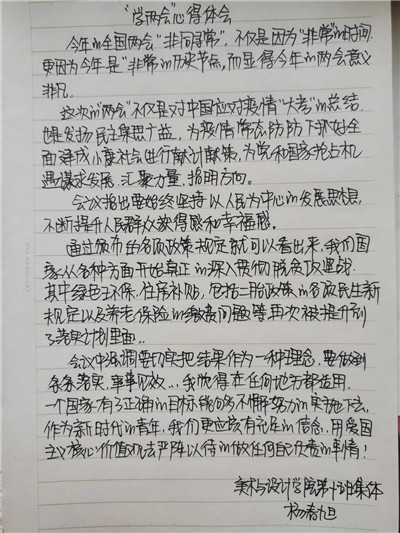 "学两会"心得体会
今年的全国两会"非同寻常",不仅是因为"非常"的时间
更因为今年是"非常"的历史节点,而显得今年的两会意义
非凡。
这次的"两会"不仅是对中国应对疫情"大考"的总结,
也是发扬民主集思广益,为疫情常态防防下抓好全
面建成小康社会进行献计献策,为党和国家抢占机
遇谋求发展、汇聚力量、指明方向。
会议指出要始终坚持以人民为中心的发展思想,
不断提升人民群众获得感和幸福感。
通过颁布的各项政策规定就可以看出来,我们国
家从各种方面开始真正的深入贯彻脱贫攻坚战.
其中绿色环保.住房补贴,包括二胎政策的各项民生新
规定以及养老保险的缴费问题等再次被提升到
了落实计划里面..
会议中强调要切实把结果作为一种理念,要做到
条条落实,事事见效...,我觉得在任何地方都适用.
一个国家有了正确的目标能够不懈努力的实施下去,
作为新时代的青年,我们更应该有充足的信念,用爱国
主义核心价值观去严阵以待的做任何自己负责的事情!
美术与设计学院第十班集体
杨春旭